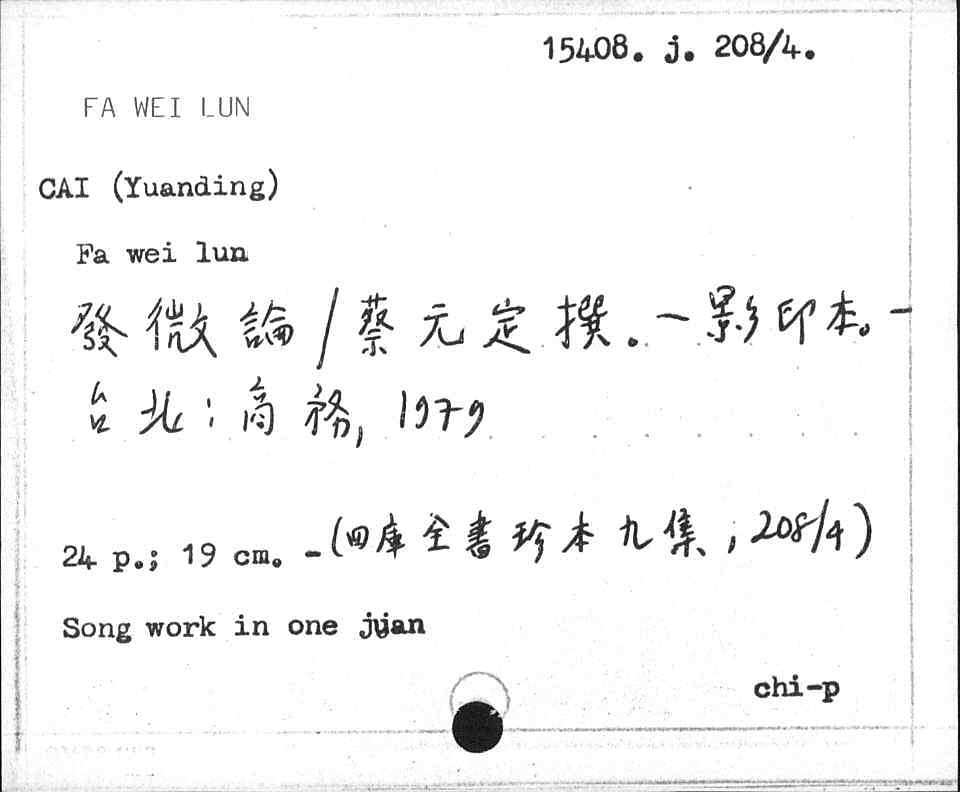 15408. j. 208/4.
FA WEI LUN
CAI (Yuanding)
Fa wei lun
發微論/蔡元定撰。-影印本。-
台北:商務, 1979
24 p.; 19 cm. -(四庫全書珍本九集;208/4)
Song work in one juan
chi-p